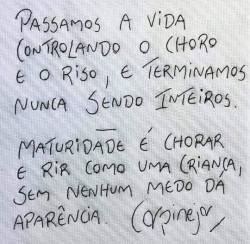 PASSAMOS A VIDA
CONTROLANDO O CHORO
E O RISO, E TERMINAMOS
NUNCA SENDO INTEIROS.
—
MATURIDADE É CHORAR
E RIR COMO UMA CRIANÇA,
SEM NENHUM MEDO DÁ
APARÊNCIA. Carpinejar